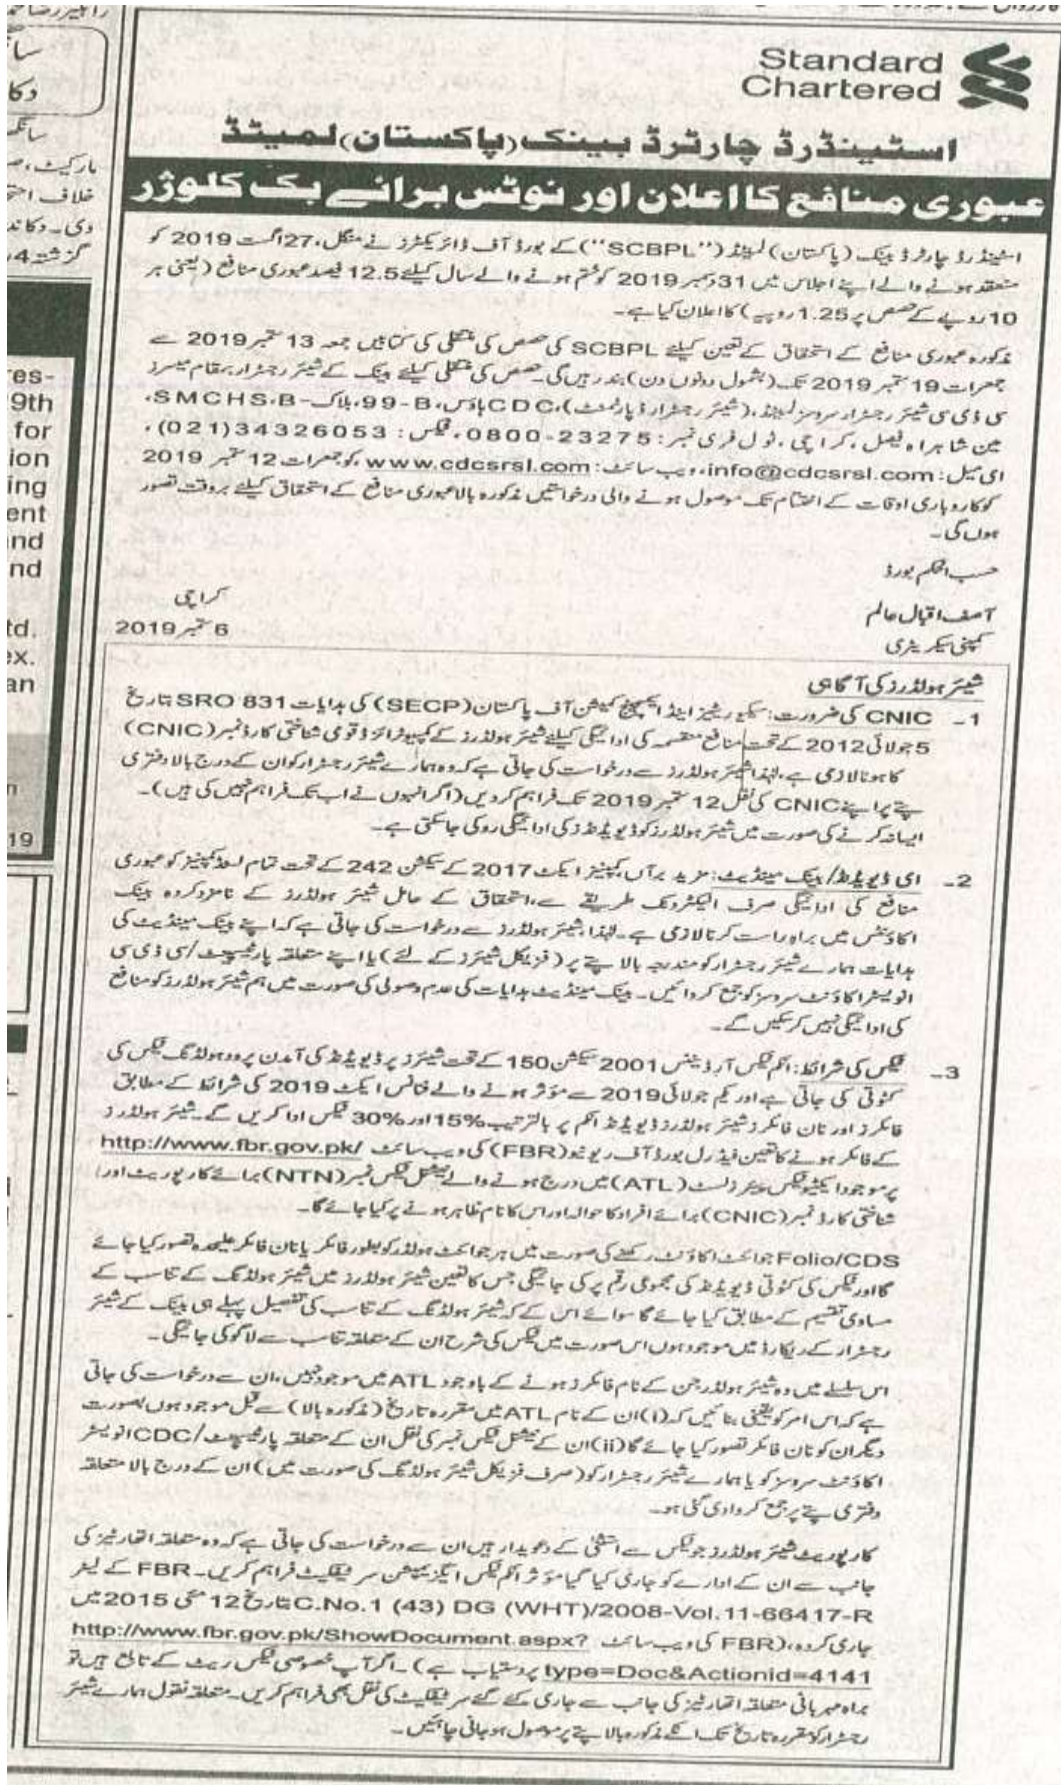 Standard
Chartered
اسٹینڈرڈ چارٹرڈ بینک (پاکستان) لمیٹڈ
عبوری منافع کا اعلان اور نوٹس برائے بک کلوژر
اسٹینڈرڈ چارٹرڈ بینک (پاکستان) لمیٹڈ ("SCBPL") کے بورڈ آف ڈائریکٹرز نے منگل، 27 اگست 2019 کو
منعقد ہونے والے اپنے اجلاس میں 31 دسمبر 2019 کو ختم ہونے والے سال کیلئے 12.5 فیصد عبوری منافع (یعنی ہر
10 روپے کے حصص پر 1.25 روپیہ) کا اعلان کیا ہے۔
مذکورہ عبوری منافع کے استحقاق کے تعین کیلئے SCBPL کی حصص کی منتقلی کی کتابیں جمعہ 13 ستمبر 2019 سے
جمعرات 19 ستمبر 2019 تک (بشمول دونوں دن) بند رہیں گی۔ حصص کی منتقلی کیلئے بینک کے شیئر رجسٹرار بمقام میسرز
سی ڈی سی شیئر رجسٹرار سروسز لمیٹڈ، (شیئر رجسٹرار ڈپارٹمنٹ)، CDC ہاؤس، 99-B، بلاک-B، SMCHS،
مین شاہراہ فیصل، کراچی، ٹول فری نمبر: 0800-23275، فیکس: (021)34326053،
ای میل: info@cdcsrsl.com، ویب سائٹ: www.cdcsrsl.com، کو جمعرات 12 ستمبر 2019
کو کاروباری اوقات کے اختتام تک موصول ہونے والی درخواستیں مذکورہ بالا عبوری منافع کے استحقاق کیلئے بروقت تصور
ہوں گی۔
حسب الحکم بورڈ
آصف اقبال عالم
کمپنی سیکریٹری
کراچی
6 ستمبر 2019
شیئر ہولڈرز کی آگاہی
1۔ CNIC کی ضرورت: سیکیورٹیز اینڈ ایکسچینج کمیشن آف پاکستان (SECP) کی ہدایات SRO 831 تاریخ
5 جولائی 2012 کے تحت منافع منقسمہ کی ادائیگی کیلئے شیئر ہولڈرز کے کمپیوٹرائزڈ قومی شناختی کارڈ نمبر (CNIC)
کا ہونا لازمی ہے، لہٰذا شیئر ہولڈرز سے درخواست کی جاتی ہے کہ وہ ہمارے شیئر رجسٹرار کو ان کے درج بالا دفتری
پتے پر اپنے CNIC کی نقل 12 ستمبر 2019 تک فراہم کردیں (اگر انہوں نے اب تک فراہم نہیں کی ہیں)۔
ایسا نہ کرنے کی صورت میں شیئر ہولڈرز کو ڈیویڈنڈز کی ادائیگی روکی جاسکتی ہے۔
2۔ ای ڈیویڈنڈ/بینک مینڈیٹ: مزید برآں، کمپنیز ایکٹ 2017 کے سیکشن 242 کے تحت تمام لسٹڈ کمپنیز کو عبوری
منافع کی ادائیگی صرف الیکٹرونک طریقے سے، استحقاق کے حامل شیئر ہولڈرز کے نامزد کردہ بینک
اکاؤنٹس میں براہ راست کرنا لازمی ہے۔ لہٰذا، شیئر ہولڈرز سے درخواست کی جاتی ہے کہ اپنے بینک مینڈیٹ کی
ہدایات ہمارے شیئر رجسٹرار کو مندرجہ بالا پتے پر (فزیکل شیئرز کے لئے) یا اپنے متعلقہ پارٹیسپنٹ/سی ڈی سی
انویسٹر اکاؤنٹ سروسز کو جمع کروائیں۔ بینک مینڈیٹ ہدایات کی عدم وصولی کی صورت میں ہم شیئر ہولڈرز کو منافع
کی ادائیگی نہیں کرسکیں گے۔
3۔ ٹیکس کی شرائط: انکم ٹیکس آرڈیننس 2001 سیکشن 150 کے تحت شیئرز پر ڈیویڈنڈ کی آمدن پر ودہولڈنگ ٹیکس کی
کٹوتی کی جاتی ہے اور یکم جولائی 2019 سے مؤثر ہونے والے فنانس ایکٹ 2019 کی شرائط کے مطابق
فائلرز اور نان فائلرز شیئر ہولڈرز ڈیویڈنڈ انکم پر بالترتیب 15% اور 30% ٹیکس ادا کریں گے۔ شیئر ہولڈرز
کے فائلر ہونے کا تعین فیڈرل بورڈ آف ریونیو (FBR) کی ویب سائٹ http://www.fbr.gov.pk/
پر موجود ایکٹیو ٹیکس پیئر لسٹ (ATL) میں درج ہونے والے نیشنل ٹیکس نمبر (NTN) برائے کارپوریٹ اور/
شناختی کارڈ نمبر (CNIC) برائے افراد کا حوالہ اور اس کا نام ظاہر ہونے پر کیا جائے گا۔
Folio/CDS جوائنٹ اکاؤنٹ رکھنے کی صورت میں ہر جوائنٹ ہولڈر کو بطور فائلر یا نان فائلر علیحدہ تصور کیا جائے
گا اور ٹیکس کی کٹوتی ڈیویڈنڈ کی مجموعی رقم پر کی جائیگی جس کا تعین شیئر ہولڈرز میں شیئر ہولڈنگ کے تناسب کے
مساوی تقسیم کے مطابق کیا جائے گا سوائے اس کے کہ شیئر ہولڈنگ کے تناسب کی تفصیل پہلے ہی بینک کے شیئر
رجسٹرار کے ریکارڈ میں موجود ہوں اس صورت میں ٹیکس کی شرح ان کے متعلقہ تناسب سے لاگو کی جائیگی۔
اس سلسلے میں وہ شیئر ہولڈر جن کے نام فائلرز ہونے کے باوجود ATL میں موجود نہیں، ان سے درخواست کی جاتی
ہے کہ اس امر کو یقینی بنائیں کہ (i) ان کے نام ATL میں مقررہ تاریخ (مذکورہ بالا) سے قبل موجود ہوں بصورت
دیگر ان کو نان فائلر تصور کیا جائے گا (ii) ان کے نیشنل ٹیکس نمبر کی نقل ان کے متعلقہ پارٹیسپنٹ/CDC انویسٹر
اکاؤنٹ سروسز کو یا ہمارے شیئر رجسٹرار کو (صرف فزیکل شیئر ہولڈنگ کی صورت میں) ان کے درج بالا متعلقہ
دفتری پتے پر جمع کروادی گئی ہو۔
کارپوریٹ شیئر ہولڈرز جو ٹیکس سے استثنیٰ کے دعویدار ہیں ان سے درخواست کی جاتی ہے کہ وہ متعلقہ اتھارٹیز کی
جانب سے ان کے ادارے کو جاری کیا گیا مؤثر انکم ٹیکس ایگزیمپشن سرٹیفکیٹ فراہم کریں۔ FBR کے لیٹر
C.No.1 (43) DG (WHT)/2008-Vol.11-66417-R تاریخ 12 مئی 2015 میں
جاری کردہ، (FBR کی ویب سائٹ http://www.fbr.gov.pk/ShowDocument.aspx?
type=Doc&Actionid=4141 پر دستیاب ہے)۔ اگر آپ خصوصی ٹیکس ریٹ کے تابع ہیں تو
براہ مہربانی متعلقہ اتھارٹیز کی جانب سے جاری کئے گئے سرٹیفکیٹ کی نقل بھی فراہم کریں۔ متعلقہ نقول ہمارے شیئر
رجسٹرار کو مقررہ تاریخ تک انکے مذکورہ بالا پتے پر موصول ہوجانی چاہئیں۔